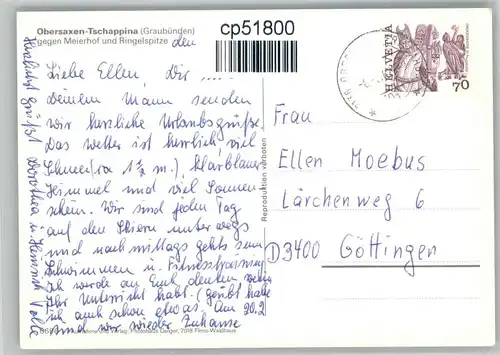 Obersaxen-Tschappina (Graubünden)
gegen Meierhof und Ringelspitze
den
cp51800
Liebe Ellen, Dir
Deinem Mann senden
wir herzliche Urlaubsgrüße.
Das Wetter ist herrlich viel
Schnee (ca 1 ½ m.), klarblauer
Himmel und viel Sonnen
schein. Wir sind jeden Tag
auf den Skiern unterwegs
und nachmittags gehts zum
Schwimmen u. Fitnesstraining
Ich werde an Euch denken wenn
Ihr Unterricht habt. (geübt habe
ich auch schon etwas. Am 20.2
sind wir wieder Zuhause
Herzlichst grüßt Dorothea u. Heinrich
Reproduktion verboten
HELVETIA
70
Frau
Ellen Moebus
Lärchenweg 6
D 3400 Göttingen
Verlag: Photohaus Geiger, 7018 Flims-Waldhaus